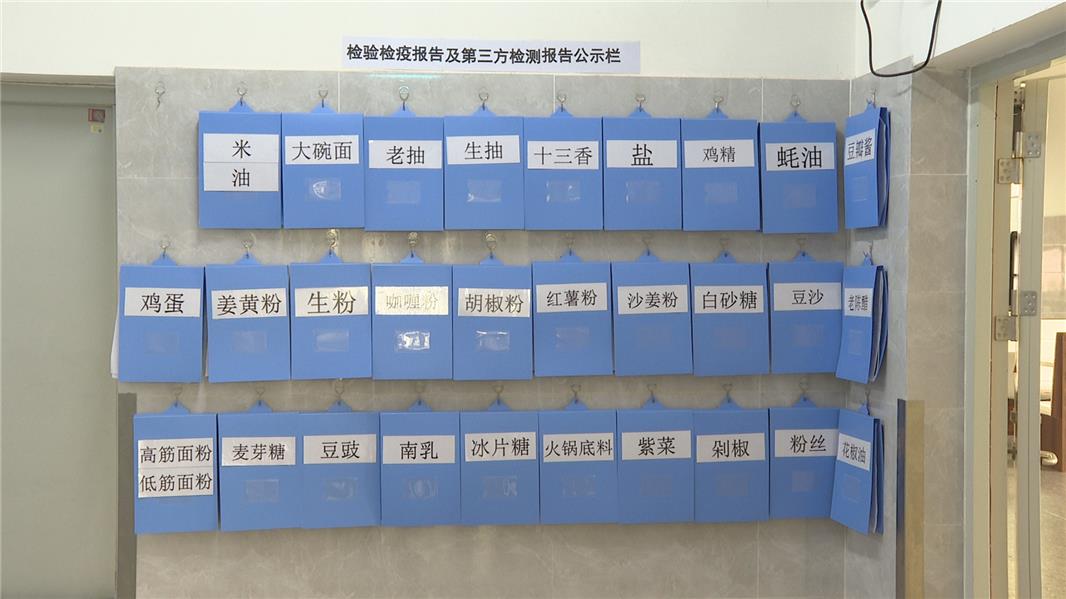 检验检疫报告及第三方检测报告公示栏
米
油
大碗面
老抽
生抽
十三香
盐
鸡精
蚝油
豆瓣酱
鸡蛋
姜黄粉
生粉
咖喱粉
胡椒粉
红薯粉
沙姜粉
白砂糖
豆沙
老陈醋
高筋面粉
低筋面粉
麦芽糖
豆豉
南乳
冰片糖
火锅底料
紫菜
剁椒
粉丝
花椒油